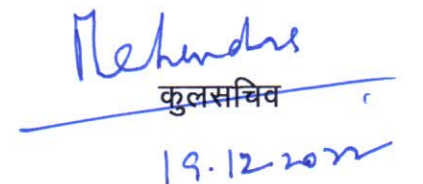 Mahendra
कुलसचिव
19.12.2022